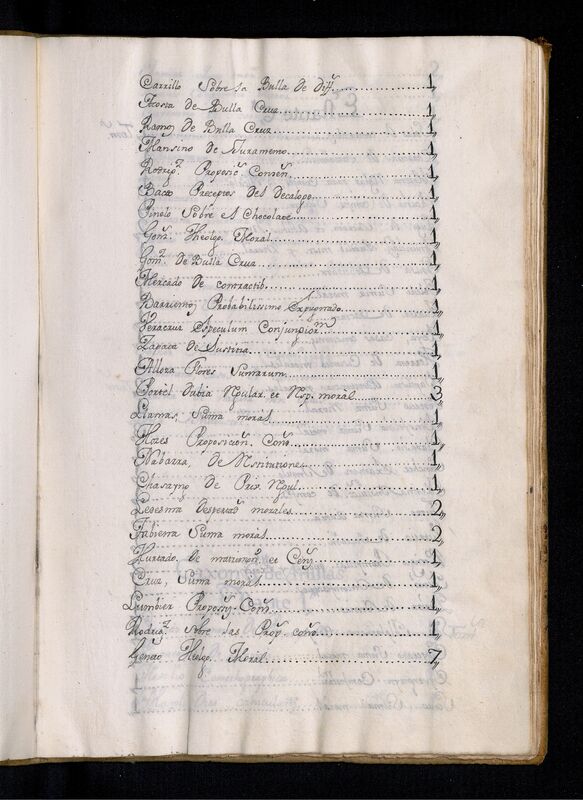 Carrillo Sobre la Bulla de Diff.s 1,,
Acosta de Bulla Cruz 1,,
Ramos de Bulla Cruz 1,,
Mansino de Juramento 1,,
Rodrig.z Proposic.s Conden. 1,,
Baeza Preceptos del Decalogo 1,,
Pinelo Sobre el Chocolate 1,,
Gom.z Theolgo. Moral 1,,
Gom.z de Bulla Cruz 1,,
Mercado de contractib. 1,,
Barrientos Probabilissimo Expugnado 1,,
Veracruz Speculum Conjungior.m 1,,
Zapata de Justitia 1,,
Allora Flores Sumarum 1,,
Portel Dubia Regular. et Resp. moral 3,,
Llamas, Suma moral 1,,
Flores Proposicion. Con.s 1,,
Nabarra, de Restitutione 1,,
de Prov. Regul. 1,,
Ledesma Despertad.r morales 2,,
Fabienna Suma moral 2,,
Hurtado de matrimon.o et Cens. 1,,
Cruz, Suma moral 1,,
Lumbier Proposiz.s Con.s 1,,
Rodrig.z Sobre las Prop.s con.s 1,,
Genero Theolg. Moral 7,,